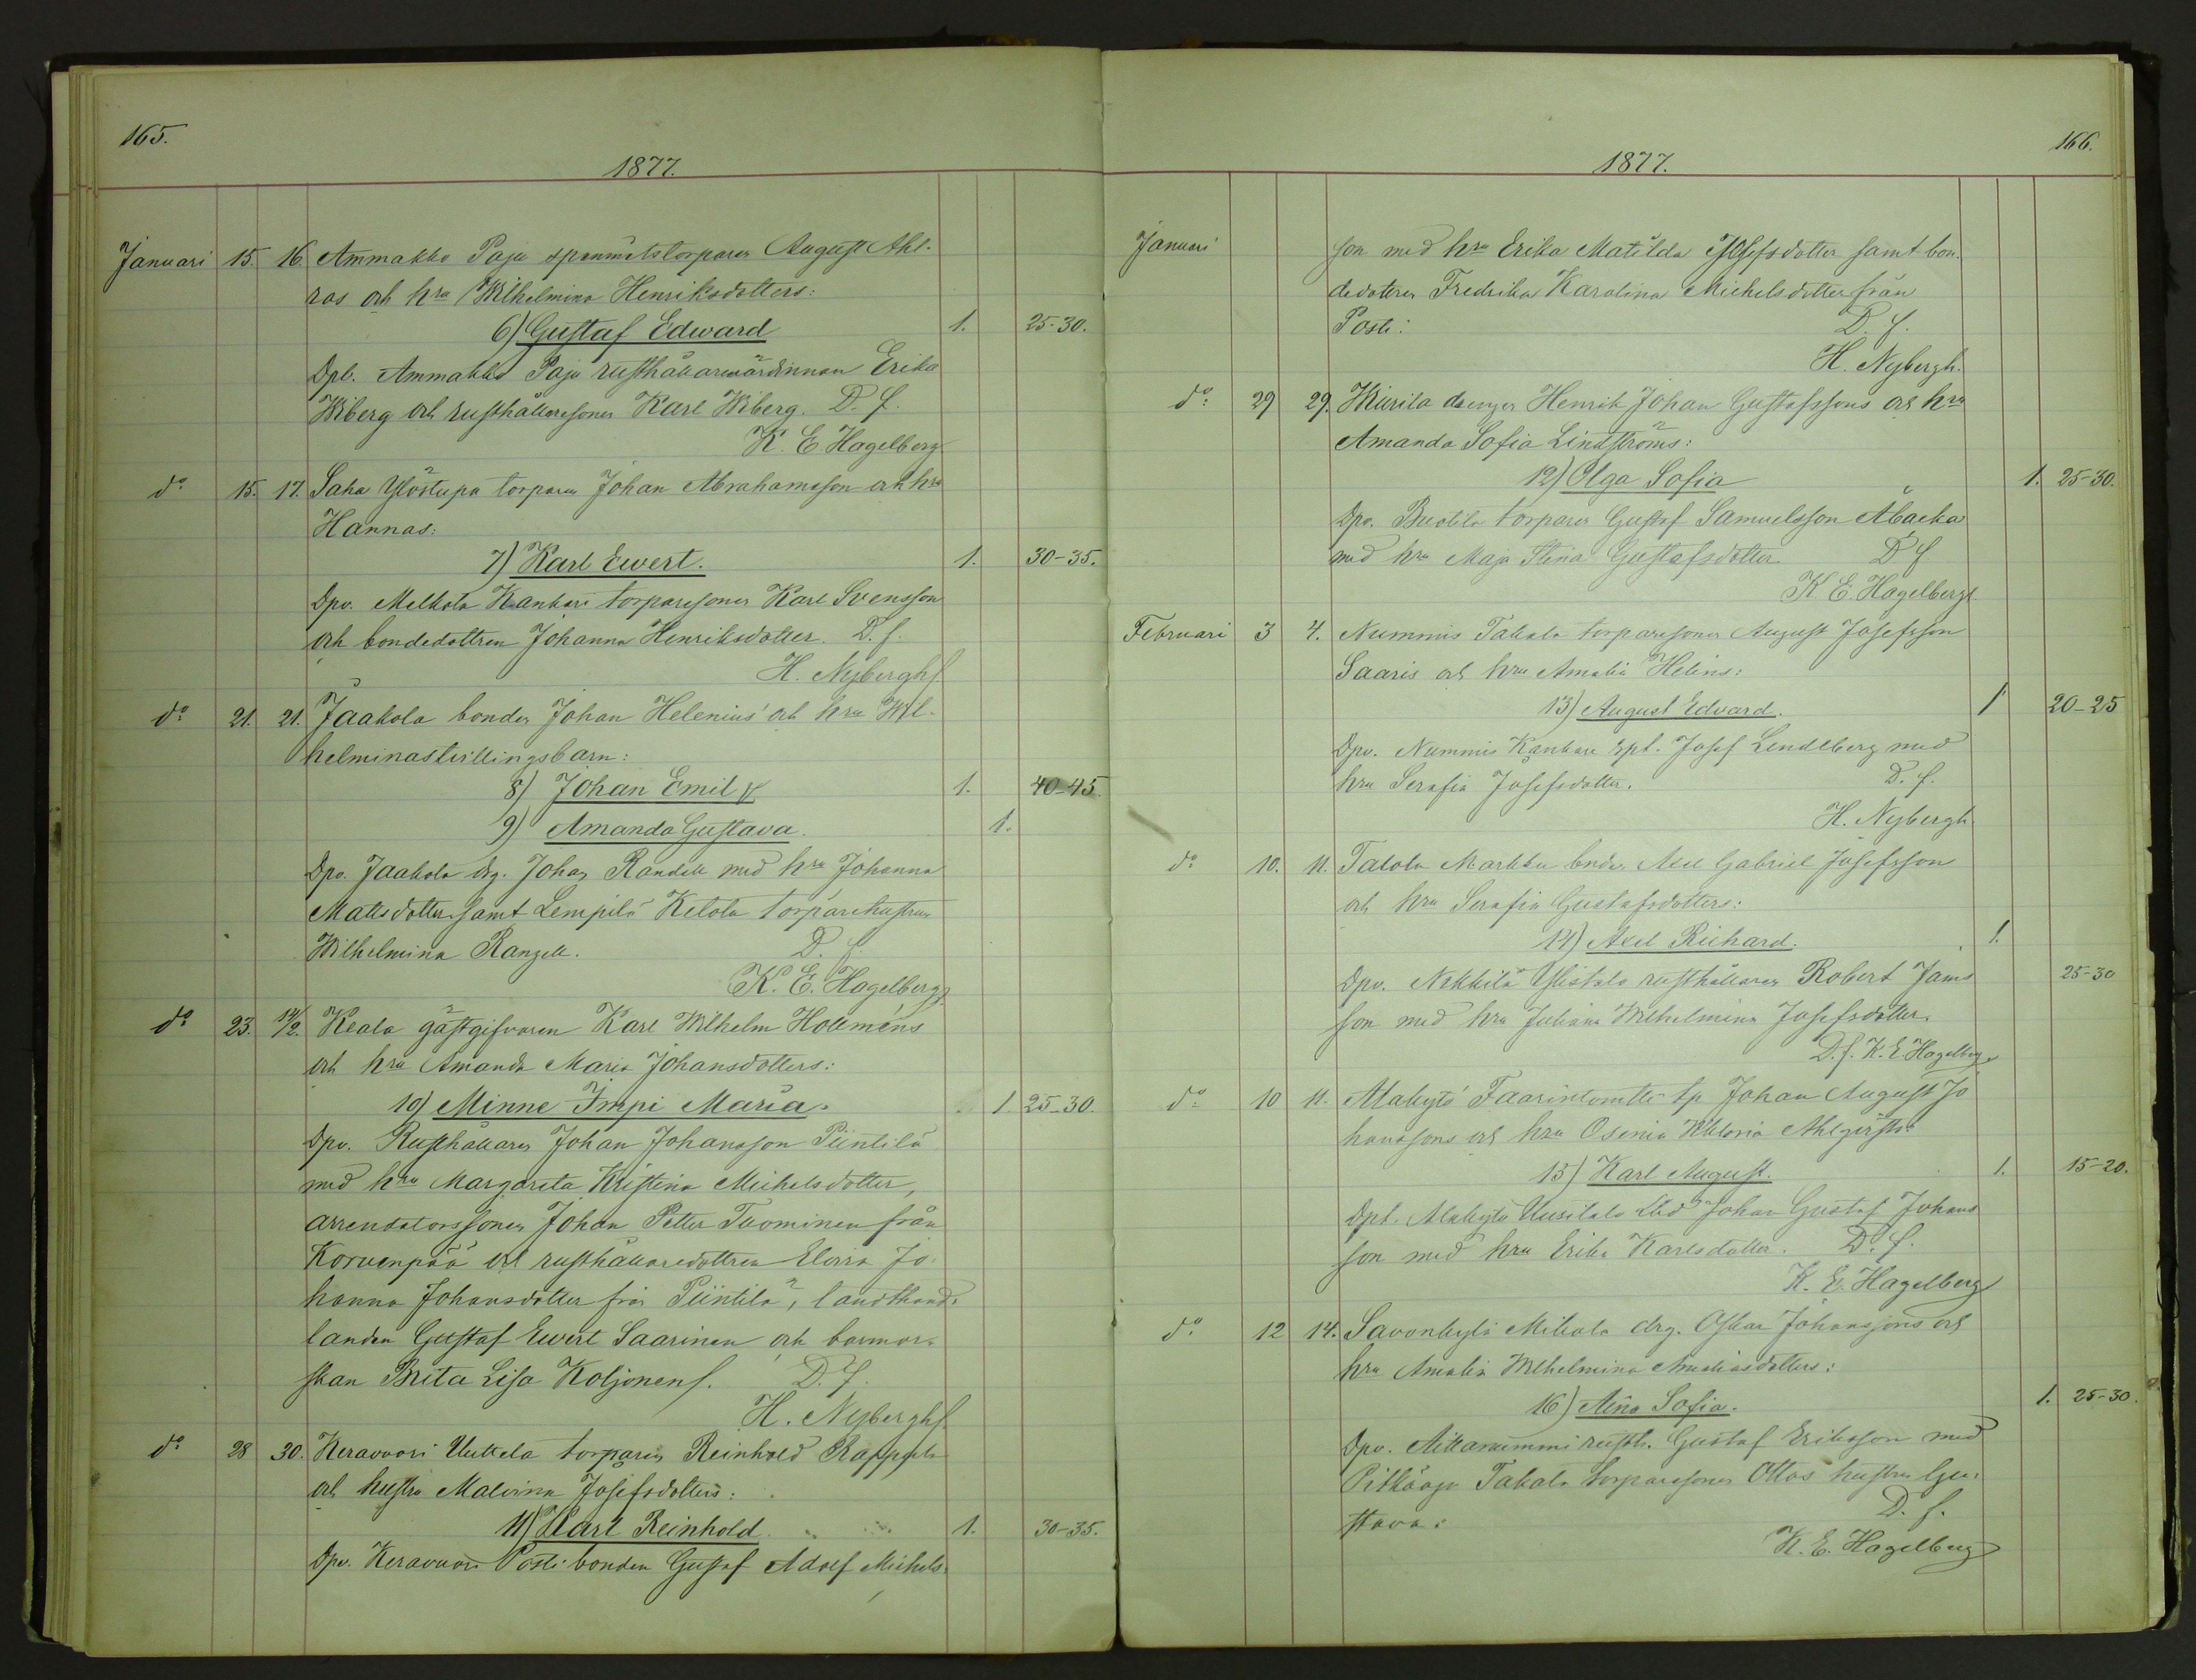 165.
1877.
Januari 15. 16. Ammakko Paja spanmålstorparen August Ahl-
ros och hru Wilhelmina Henriksdotters:
6) Gustaf Edward 1. 25-30.
Dpv. Ammakko Paja rusthållarewärdinnan Erika
Wiberg och rusthållaresonen Karl Wiberg. D. f.
K. E. Hagelberg
do 15. 17. Saha Ylöstupa torparen Johan Abrahamsson och hru
Hannas:
7) Karl Ewert. 1. 30-35.
Dpv. Melkola Kankari torparesonen Karl Svensson
och bondedottren Johanna Henriksdotter. D. f.
H. Nybergh
do 21. 21. Jaakola bonden Johan Helenius' och hru Wil-
helminas tvillingsbarn:
8) Johan Emil 1. 40-45.
9) Amanda Gustava. 1.
Dpv. Jaakola drg. Johan Randell med hru Johanna
Mattsdotter samt Lempilä Ketola torparehustrun
Wilhelmina Rangell. D. f.
K. E. Hagelberg
do 23. 14/2. Keala gästgifvaren Karl Wilhelm Hollméns
och hru Amanda Maria Johansdotters:
10) Minne Impi Maria. 1. 25-30.
Dpv. Rusthållaren Johan Johansson Piintilä
med hru Margareta Kristina Michelsdotter,
arrendatorssonen Johan Petter Tuominen från
Korvenpää och rusthållaredottren Elvira Jo-
hanna Johansdotter från Piintilä, landthand-
landen Gustaf Ewert Saarinen och barnmor-
skan Brita Lisa Koljonen. D. f.
H. Nybergh
do 28 30. Keravuori Uutela torparen Reinhold
och hustru Malvina Josefsdotters:
11) Karl Reinhold 1. 30-35.
Dpv. Keravuori Posti bonden Gustaf Adolf Michels-
166.
1877.
Januari son med hru Erika Matilda Josefsdotter samt bon-
dedottren Fredrika Karolina Michelsdotter från
Posti: D. f.
H. Nybergh.
do 29 29. Kiurila drengen Henrik Johan Gustafssons och hru
Amanda Sofia Lindströms:
12) Olga Sofia 1. 25-30.
Dpv. torparen Gustaf Samuelsson Åbacka
med hru Maja Stina Gustafsdotter D f
K E. Hagelberg
Februari 3 4. Nummis Takala torparesonen August Josefsson
Saaris och hru Amalia Helins:
13) August Edvard. 1 20-25
Dpv. Nummis Kankare Josef Lendlberg med
hru Serafia Josefsdotter. D. f.
H. Nybergh
do 10. 11. Talola Markku bnde. Axel Gabriel Josefsson
och hru Serafia Gustafsdotters:
14) Axel Richard. 1.
Dpv. Nekkilä Ylistalo rusthållaren Robert Jans 25-30
son med hru Juliana Wilhelmina Josefsdotter.
D. f. K. E. Hagelberg
do 10 11. Alakylä tp Johan August Jo
hanssons och hru Osenia Viktoria
15) Karl August. 1. 15-20.
Dpt. Alakylä Uusitalo Johan Gustaf Johans
son med hru Erika Karlsdotter. D. f.
K. E. Hagelberg
do 12 14. Savonkylä Mikola drg. Oskar Johanssons och
hru Amalia Wilhelmina Amaliasdotters:
16) Aina Sofia. 1. 25-30.
Dpv. Aittanummi rusth. Gustaf Eriksson med
Pitkäoja Takala torparesonen Ottos hustru Gu-
stava: D. f.
K. E. Hagelberg